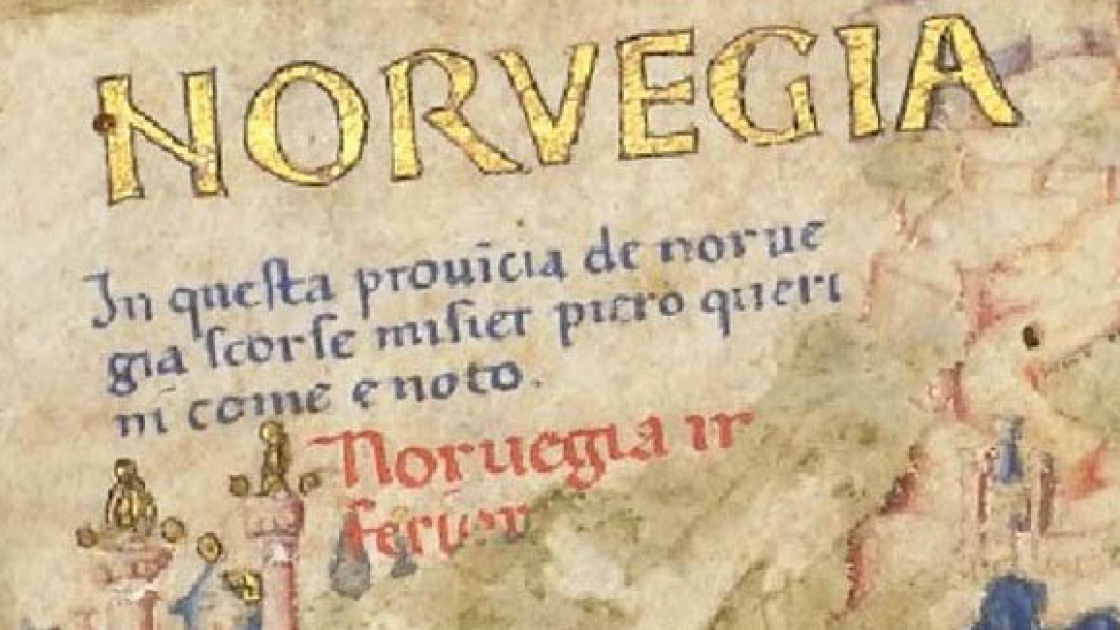 NORVEGIA
In questa prouīcia de norue
gia scorse misier piero queri
ni come e noto.
Noruegia in
ferior